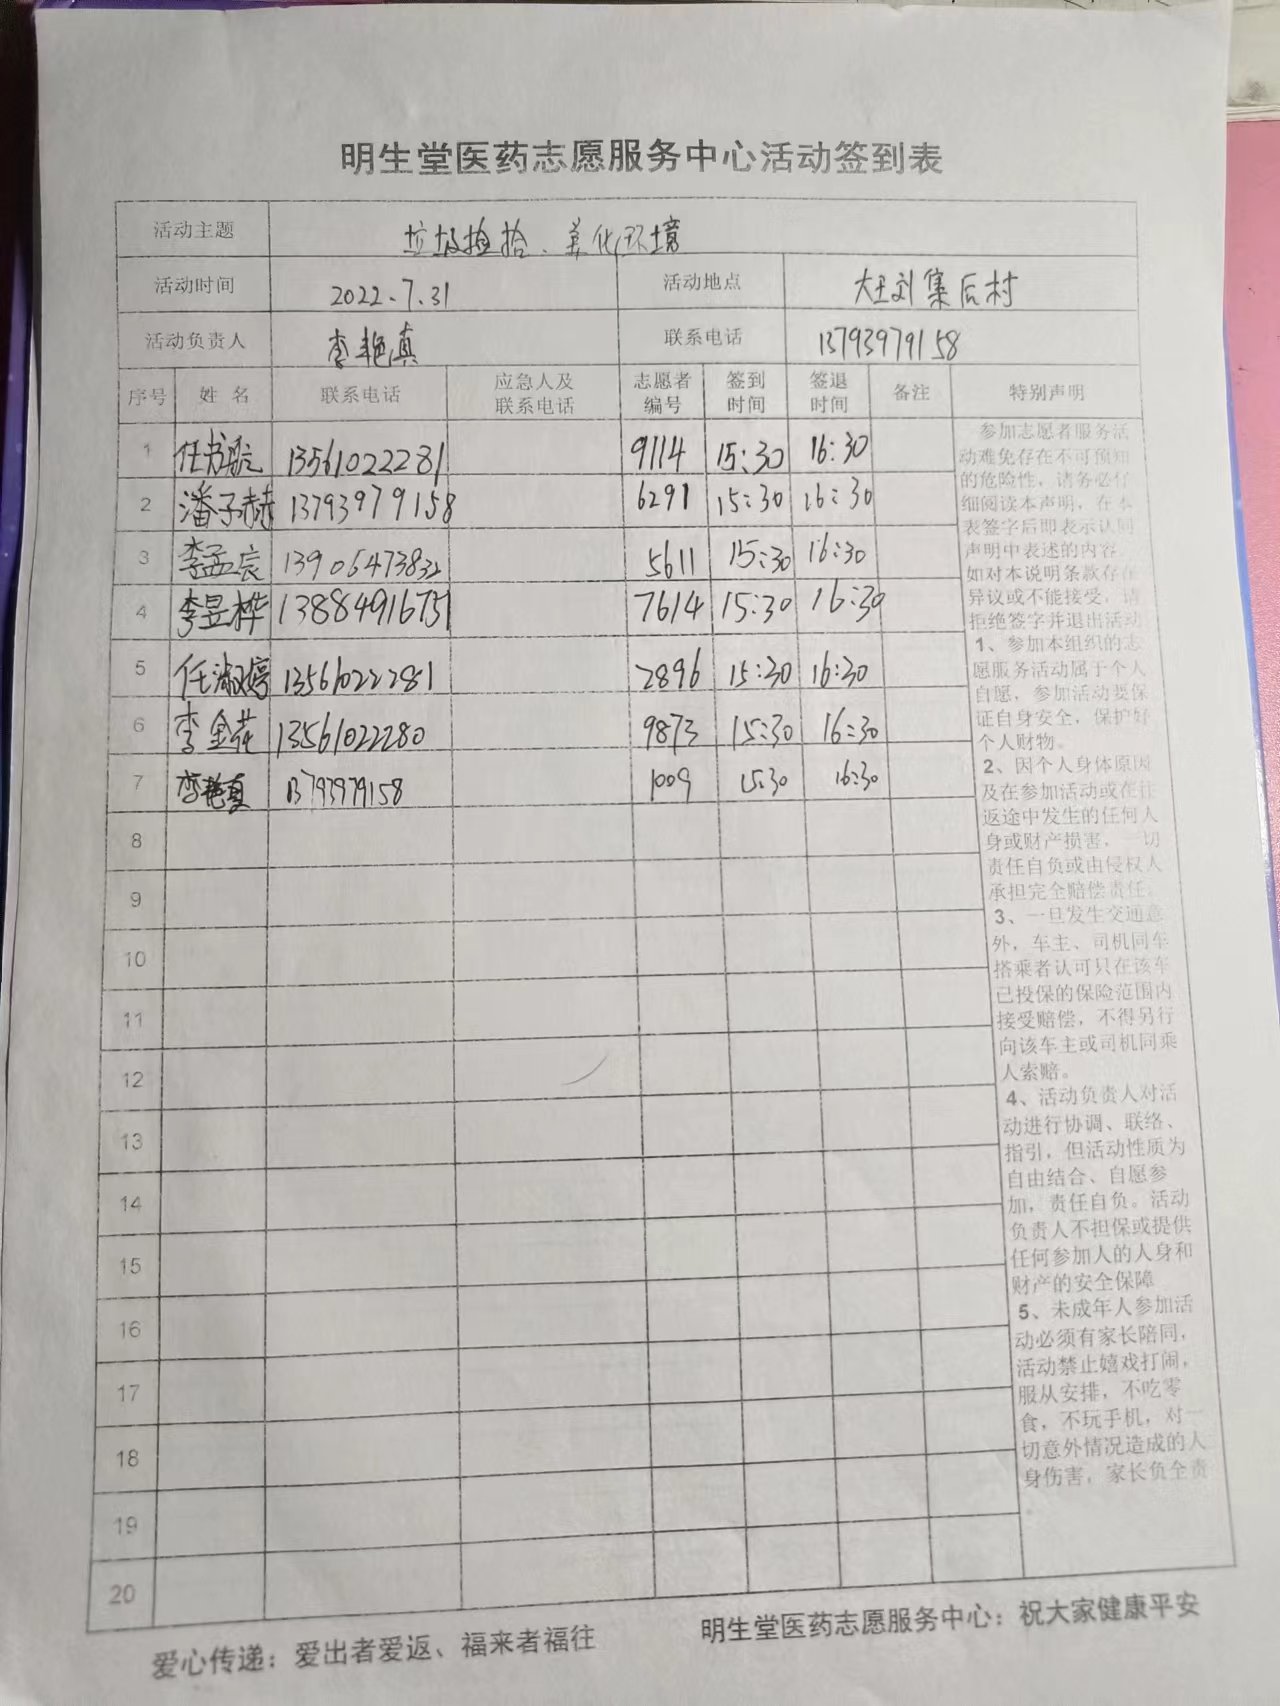 明生堂医药志愿服务中心活动签到表
活动主题 垃圾捡拾、美化环境
活动时间 2022.7.31 活动地点 大王刘集后村
活动负责人 李艳真 联系电话 13793979158
序号 姓名 联系电话 应急人及联系电话 志愿者编号 签到时间 签退时间 备注 特别声明
1 13561022281 9114 15:30 16:30
2 潘子赫 13793979158 6291 15:30 16:30
3 李孟宸 13906473832 5611 15:30 16:30
4 李昱桦 13884916751 7614 15:30 16:30
5 任淑婷 13561022281 2896 15:30 16:30
6 李金花 13561022280 9873 15:30 16:30
7 李艳真 13793979158 1009 15:30 16:30
8
9
10
11
12
13
14
15
16
17
18
19
20
参加志愿者服务活
动难免存在不可预知
的危险性，请务必仔
细阅读本声明，在本
表签字后即表示认同
声明中表述的内容
如对本说明条款存在
异议或不能接受，请
拒绝签字并退出活动
1、参加本组织的志
愿服务活动属于个人
自愿，参加活动要保
证自身安全，保护好
个人财物。
2、因个人身体原因
及在参加活动或在往
返途中发生的任何人
身或财产损害，一切
责任自负或由侵权人
承担完全赔偿责任。
3、一旦发生交通意
外，车主、司机同车
搭乘者认可只在该车
已投保的保险范围内
接受赔偿，不得另行
向该车主或司机同乘
人索赔。
4、活动负责人对活
动进行协调、联络、
指引，但活动性质为
自由结合、自愿参
加，责任自负。活动
负责人不担保或提供
任何参加人的人身和
财产的安全保障
5、未成年人参加活
动必须有家长陪同，
活动禁止嬉戏打闹，
服从安排，不吃零
食，不玩手机，对一
切意外情况造成的人
身伤害，家长负全责
爱心传递：爱出者爱返、福来者福往
明生堂医药志愿服务中心：祝大家健康平安